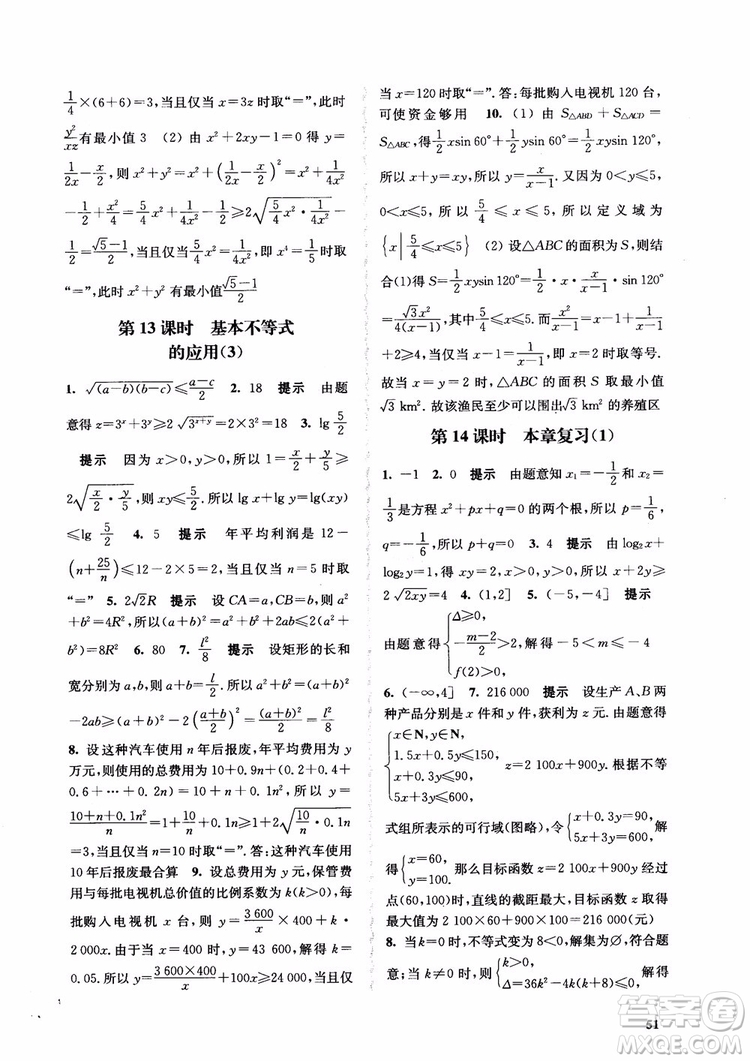 1/4×(6+6)=3,当且仅当 x=3z 时取“=”,此时
y²/xz 有最小值 3 (2) 由 x²+2xy-1=0 得 y=
1/2x - x/2,则 x²+y²=x²+(1/2x - x/2)²=5x²/4+1/4x²
-1/2=1/4(5x²+1/x²)-1/2≥2√(5x²/4·1/4x²)
-1/2=(√5-1)/2,当且仅当 5x²/4=1/4x²,即 x⁴=1/5 时取
“=”,此时 x²+y² 有最小值 (√5-1)/2
第 13 课时 基本不等式
的应用(3)
1. √((a-b)(b-c))≤(a-c)/2 2. 18 提示 由题
意得 z=3ˣ+3ʸ≥2√(3ˣ⁺ʸ)=18 3. lg 5/2
提示 因为 x>0,y>0,所以 1=x/2+y/5≥
2√(x/2·y/5),所以 xy≤5/2.所以 lg x+lg y=lg(xy)
≤lg 5/2 4. 5 提示 年平均利润是 12-
(n+25/n)≤12-2×5=2,当且仅当 n=5 时取
“=” 5. 2√2R 提示 设 CA=a,CB=b,则 a²
+b²=4R²,所以(a+b)²=a²+b²+2ab≤2(a²
+b²)=8R² 6. 80 7. l²/8 提示 设矩形的长和
宽分别为 a,b,则 a+b=l/2.所以 a²+b²=(a+b)²
-2ab≥(a+b)²-2((a+b)/2)²=(a+b)²/2=l²/8
8. 设这种汽车使用 n 年后报废,年平均费用为 y
万元,则使用的总费用为 10+0.9n+(0.2+0.4+
0.6+…+0.2n)=10+n+0.1n²,所以 y=
(10+n+0.1n²)/n=1+10/n+0.1n≥1+2√(10/n·n/10)
=3,当 n=10 时取“=”.答:这种汽车使用
10 年后报废最合算 9. 设总费用为 y 元,保管费
用与每批电视机总价值的比例系数为 k(k>0),每
批购入电视机 x 台,则 y=3 600/x×400+
2 000x·k.当 x=400 时,y=43 600,解得 k=
0.05.所以 y=3 600×400/x+100x≥24 000,仅
当 x=120 时取“=”.答:每批购入电视机 120 台,
可使资金够用 10. (1) 由 S△ABD+S△ACD=
S△ABC,得 1/2xsin 60°+1/2ysin 60°=1/2xysin 120°,
所以 x+y=xy,所以 y=x/(x-1).又 0<y≤5,
0<x≤5,所以 5/4≤x≤5,所以定义域为
{x|5/4≤x≤5} (2) 设△ABC 的面积为 S,则结
合(1)得 S=1/2xysin 120°=1/2x·x/(x-1)·sin 120°=
√3x²/4(x-1),其中 5/4≤x≤5.仅当 x-1=1/(x-1)
(5/4≤x≤5),即 x=2 时取等号.
故当 x=2 时,△ABC 的面积 S 取最小值
√3 km².故该渔民至少可围出√3 km² 的养殖区
第 14 课时 本章复习(1)
1. -1 2. 0 提示 由题意知 x₁=-1/2 和 x₂=
1/3 是方程 x²+px+q=0 的两个根,所以 p=1/6,
q=-1/6,所以 p+q=0 3. 4 提示 由 log₂x+
log₂y=1,得 xy=2,且 x>0,y>0,所以 x+2y≥
2√(2xy)=4 4. (1,2] 5. (-5,-4] 提示
由题意得{Δ≥0, -(m-2)/2>2, f(2)>0,解得-5<m≤-4
6. (-∞,4] 7. 216 000 提示 设生产 A,B 两
种产品分别是 x 件和 y 件,获利为 z 元.
{x∈N, y∈N, 1.5x+0.5y≤150, x+0.3y≤90, 5x+3y≤600, z=2 100x+900y.根据不等
式组所表示的可行域(图略),令{x+0.3y=90, 5x+3y=600,解
得{x=60, y=100.那么目标函数 z=2 100x+900y 经过
点(60,100)时,直线的截距最大,目标函数取得
最大值为 2 100×60+900×100=216 000(元)
8. 当 k=0 时,不等式变为 8<0,解集为∅,符合题
意;当 k≠0 时,则{k>0, Δ=36k²-4k(k+8)≤0,解得
51